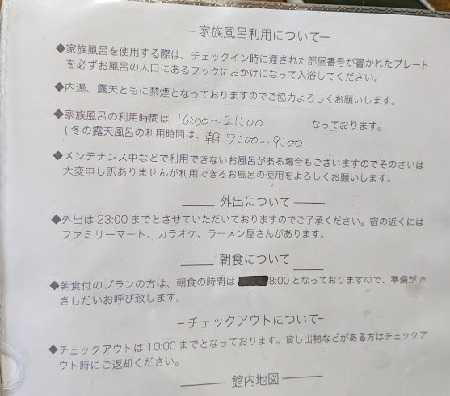 ―家族風呂利用について―
◆家族風呂を使用する際は、チェックイン時に渡された部屋番号が書かれたプレート
を必ずお風呂の入口にあるフックにおかけになって入浴してください。
◆内湯、露天ともに禁煙となっておりますのでご協力よろしくお願いします。
◆家族風呂の利用時間は 16:00~21:00 なっております。
(冬の露天風呂の利用時間は、朝 7:00~9:00
◆メンテナンス中などで利用できないお風呂がある場合もございますのでそのさいは
大変申し訳ありませんが利用できるお風呂の使用をよろしくお願いします。
― 外出について ―
◆外出は23:00までとさせていただいておりますのでご了承ください。宿の近くには
ファミリーマート、カラオケ、ラーメン屋さんがあります。
― 朝食について ―
◆朝食付のプランの方は、朝食の時間は 8:00となっておりますので、準備が
きしだいお呼び致します。
―チェックアウトについて―
◆チェックアウトは10:00までとなっております。貸し出物などがある方はチェックア
ウト時にご返却ください。
― 館内地図 ―